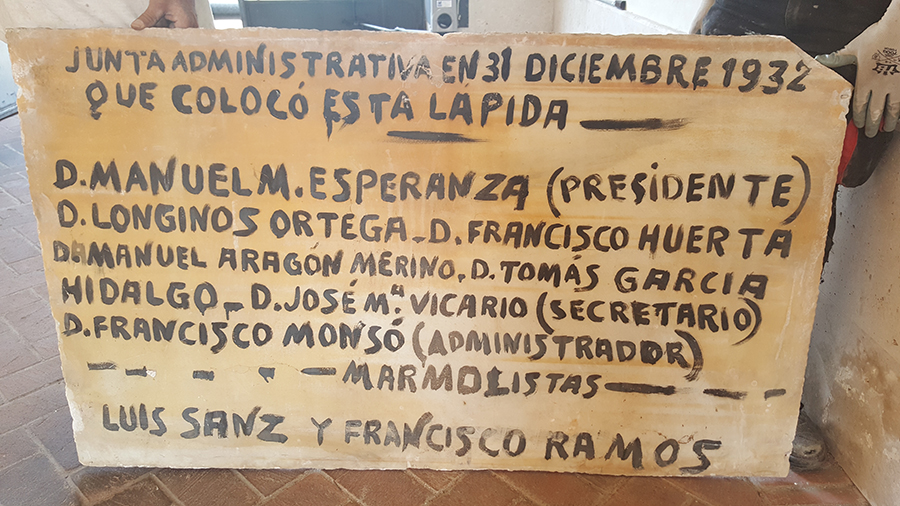 JUNTA ADMINISTRATIVA EN 31 DICIEMBRE 1932
QUE COLOCÓ ESTA LÁPIDA
D. MANUEL M. ESPERANZA (PRESIDENTE)
D. LONGINOS ORTEGA - D. FRANCISCO HUERTA
D. MANUEL ARAGÓN MERINO - D. TOMÁS GARCIA
HIDALGO - D. JOSÉ Mª VICARIO (SECRETARIO)
D. FRANCISCO MONSÓ (ADMINISTRADOR)
- - - - - MARMOLISTAS - - -
LUIS SANZ Y FRANCISCO RAMOS